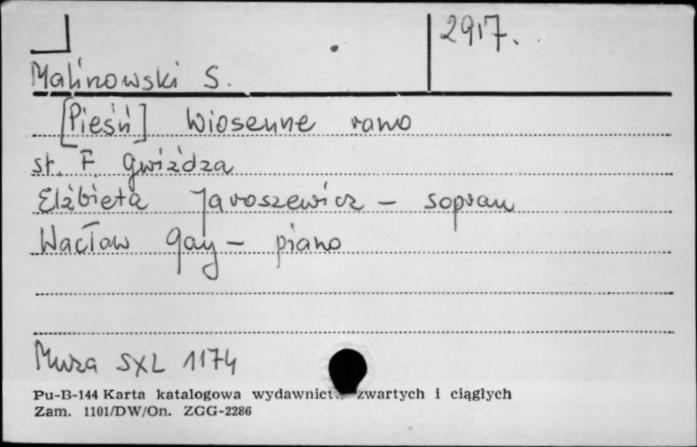 2917.
Malinowski S.
[Pieśń] Wiosenne rano
sł. F. Gwiżdża
Elżbieta Jaroszewicz - sopran
Wacław Gay - piano
Muza SXL 1174
Pu-B-144 Karta katalogowa wydawnictw zwartych i ciągłych
Zam. 1101/DW/On. ZGG-2286